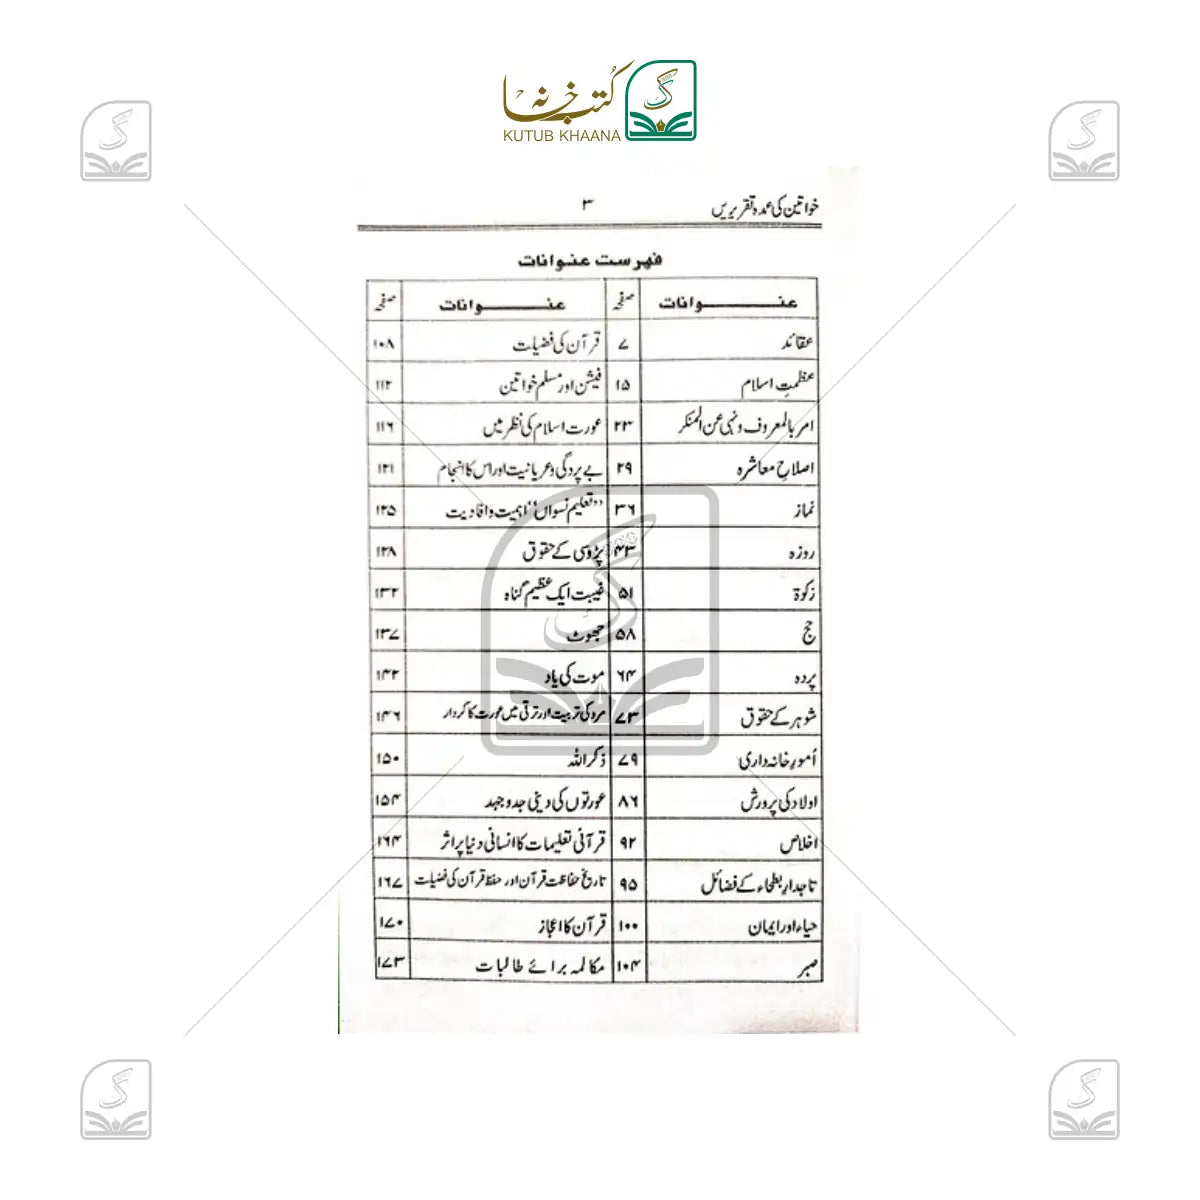 کتب خانہ
KUTUB KHAANA
خواتین کی عمدہ تقریریں ۳
فہرست عنوانات
عنــــــوانات صفحہ عنــــــوانات صفحہ
عقائد ۷ قرآن کی فضیلت ۱۰۸
عظمتِ اسلام ۱۵ فیشن اور مسلم خواتین ۱۱۲
امر بالمعروف ونہی عن المنکر ۲۳ عورت اسلام کی نظر میں ۱۱۶
اصلاحِ معاشرہ ۲۹ بے پردگی وعریانیت اور اس کا انجام ۱۲۱
نماز ۳۶ ”تعلیم نسواں“ اہمیت وافادیت ۱۲۵
روزہ ۴۳ پڑوسی کے حقوق ۱۲۸
زکوٰۃ ۵۱ غیبت ایک عظیم گناہ ۱۳۲
حج ۵۸ جھوٹ ۱۳۷
پردہ ۶۴ موت کی یاد ۱۴۲
شوہر کے حقوق ۷۳ مرد کی تربیت اور ترقی میں عورت کا کردار ۱۴۶
اُمورِ خانہ داری ۷۹ ذکر اللہ ۱۵۰
اولاد کی پرورش ۸۶ عورتوں کی دینی جدوجہد ۱۵۴
اخلاص ۹۲ قرآنی تعلیمات کا انسانی دنیا پر اثر ۱۶۴
تاجدارِ بطحاء کے فضائل ۹۵ تاریخ حفاظت قرآن اور حفظ قرآن کی فضیلت ۱۶۷
حیاء اور ایمان ۱۰۰ قرآن کا اعجاز ۱۷۰
صبر ۱۰۴ مکالمہ برائے طالبات ۱۷۳